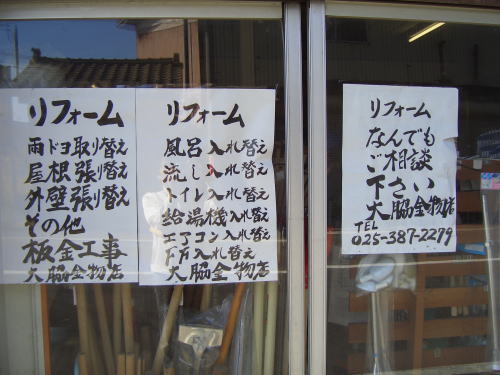 リフォーム
雨ドヨ取り替え
屋根張り替え
外壁張り替え
その他
板金工事
大脇金物店
リフォーム
風呂入れ替え
流し入れ替え
トイレ入れ替え
給湯機入れ替え
エアコン入れ替え
ドア入れ替え
大脇金物店
リフォーム
なんでも
ご相談
下さい
大脇金物店
TEL
025-387-2279